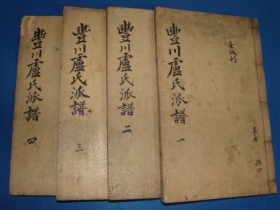 豊川盧氏派譜 一
豊川盧氏派譜 二
豊川盧氏派譜 三
豊川盧氏派譜 四